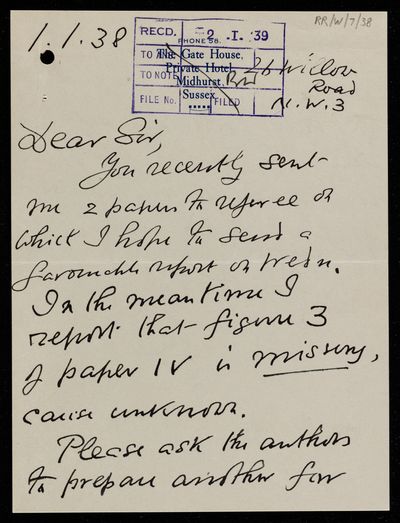 RR/W/7/38
1.1.38
RECD. 2 . I . 39
PHONE 58.
TO The Gate House,
Private Hotel,
TO NOTE Midhurst,
Sussex
FILE No. FILED
26 Willow
Road
N.W.3
Dear Sir,
You recently sent
me 2 papers to referee on
which I hope to send a
favourable report on Wedn.
In the meantime I
report that figure 3
of paper IV is missing,
cause unknown.
Please ask the authors
to prepare another for